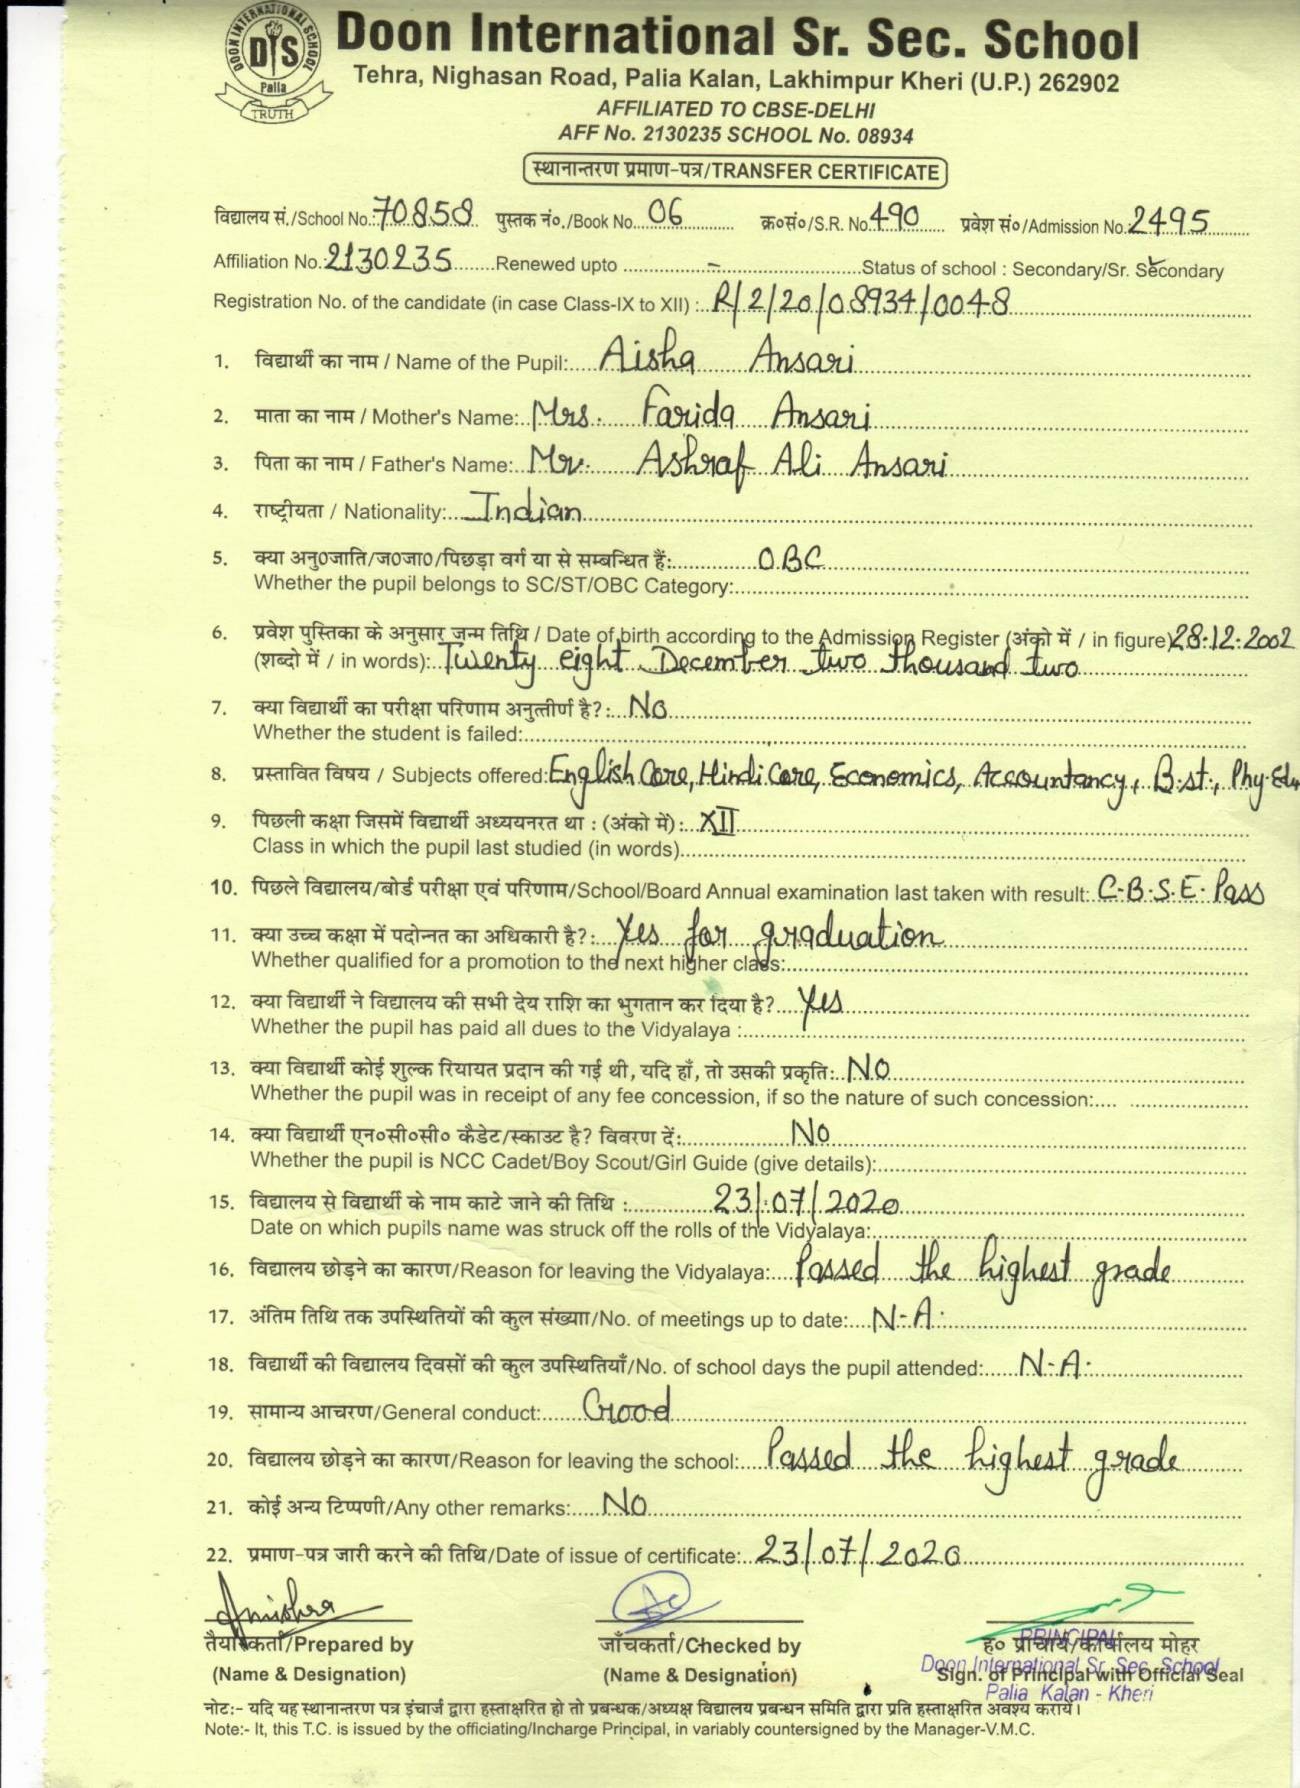 DOON INTERNATIONAL SCHOOL
DIS
Palia
TRUTH
Doon International Sr. Sec. School
Tehra, Nighasan Road, Palia Kalan, Lakhimpur Kheri (U.P.) 262902
AFFILIATED TO CBSE-DELHI
AFF No. 2130235 SCHOOL No. 08934
स्थानान्तरण प्रमाण-पत्र/TRANSFER CERTIFICATE
विद्यालय सं./School No.:70858 पुस्तक नं०./Book No. 06 क्र०सं०/S.R. No. 490 प्रवेश सं०/Admission No. 2495
Affiliation No.: 2130235 Renewed upto - Status of school : Secondary/Sr. Secondary
Registration No. of the candidate (in case Class-IX to XII) : R/2/20/08934/0048
1. विद्यार्थी का नाम / Name of the Pupil: Aisha Ansari
2. माता का नाम / Mother's Name: Mrs. Farida Ansari
3. पिता का नाम / Father's Name: Mr. Ashraf Ali Ansari
4. राष्ट्रीयता / Nationality: Indian
5. क्या अनु0जाति/ज0जा0/पिछड़ा वर्ग या से सम्बन्धित हैं: OBC
Whether the pupil belongs to SC/ST/OBC Category:
6. प्रवेश पुस्तिका के अनुसार जन्म तिथि / Date of birth according to the Admission Register (अंको में / in figure) 28.12.2002
(शब्दो में / in words): Twenty eight December two thousand two
7. क्या विद्यार्थी का परीक्षा परिणाम अनुत्तीर्ण है?: No
Whether the student is failed:
8. प्रस्तावित विषय / Subjects offered: English Core, Hindi Core, Economics, Accountancy, B.st., Phy.Edu
9. पिछली कक्षा जिसमें विद्यार्थी अध्ययनरत था : (अंको में): XII
Class in which the pupil last studied (in words)
10. पिछले विद्यालय/बोर्ड परीक्षा एवं परिणाम/School/Board Annual examination last taken with result: C.B.S.E. Pass
11. क्या उच्च कक्षा में पदोन्नत का अधिकारी है?: Yes for graduation
Whether qualified for a promotion to the next higher class:
12. क्या विद्यार्थी ने विद्यालय की सभी देय राशि का भुगतान कर दिया है? Yes
Whether the pupil has paid all dues to the Vidyalaya :
13. क्या विद्यार्थी कोई शुल्क रियायत प्रदान की गई थी, यदि हाँ, तो उसकी प्रकृति: No
Whether the pupil was in receipt of any fee concession, if so the nature of such concession:
14. क्या विद्यार्थी एन०सी०सी० कैडेट/स्काउट है? विवरण दें: No
Whether the pupil is NCC Cadet/Boy Scout/Girl Guide (give details):
15. विद्यालय से विद्यार्थी के नाम काटे जाने की तिथि : 23/07/2020
Date on which pupils name was struck off the rolls of the Vidyalaya:
16. विद्यालय छोड़ने का कारण/Reason for leaving the Vidyalaya: Passed the highest grade
17. अंतिम तिथि तक उपस्थितियों की कुल संख्या/No. of meetings up to date: N.A.
18. विद्यार्थी की विद्यालय दिवसों की कुल उपस्थितियाँ/No. of school days the pupil attended: N.A.
19. सामान्य आचरण/General conduct: Good
20. विद्यालय छोड़ने का कारण/Reason for leaving the school: Passed the highest grade
21. कोई अन्य टिप्पणी/Any other remarks: No
22. प्रमाण-पत्र जारी करने की तिथि/Date of issue of certificate: 23/07/2020
तैयारकर्ता/Prepared by जाँचकर्ता/Checked by ह० प्राचार्य/कार्यालय मोहर
(Name & Designation) (Name & Designation) Sign. of Principal with Official Seal
PRINCIPAL
Doon International Sr. Sec. School
Palia Kalan - Kheri
नोटः- यदि यह स्थानान्तरण पत्र इंचार्ज द्वारा हस्ताक्षरित हो तो प्रबन्धक/अध्यक्ष विद्यालय प्रबन्धन समिति द्वारा प्रति हस्ताक्षरित अवश्य करायें।
Note:- It, this T.C. is issued by the officiating/Incharge Principal, in variably countersigned by the Manager-V.M.C.